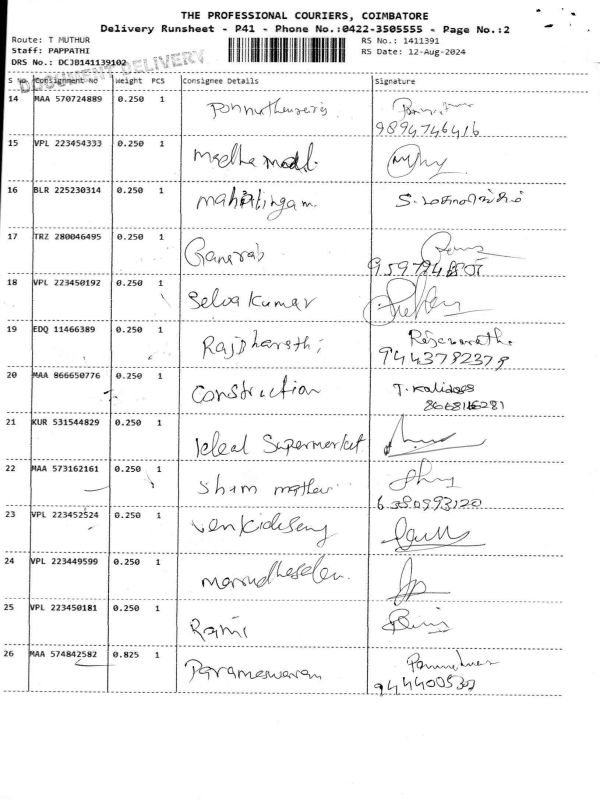 THE PROFESSIONAL COURIERS, COIMBATORE
Delivery Runsheet - P41 - Phone No.:0422-3505555 - Page No.:2
Route: T MUTHUR RS No.: 1411391
Staff: PAPPATHI RS Date: 12-Aug-2024
DRS No.: DCJB141139102
DOCUMENT DELIVERY
S No Consignment No Weight PCS Consignee Details Signature
14 MAA 570724889 0.250 1
9894746416
15 VPL 223454333 0.250 1 Medha
16 BLR 225230314 0.250 1 Mahalingam S. மகாலிங்கம்
17 TRZ 280046495 0.250 1
18 VPL 223450192 0.250 1 Selva Kumar
19 EDQ 11466389 0.250 1 Rajbharathi
9443782379
20 MAA 866650776 0.250 1 Construction T. Kalidoss
21 KUR 531544829 0.250 1 Ideal Supermarket
22 MAA 573162161 0.250 1 Sham
6380993120
23 VPL 223452524 0.250 1
24 VPL 223449599 0.250 1
25 VPL 223450181 0.250 1
26 MAA 574842582 0.825 1 Parameswaran